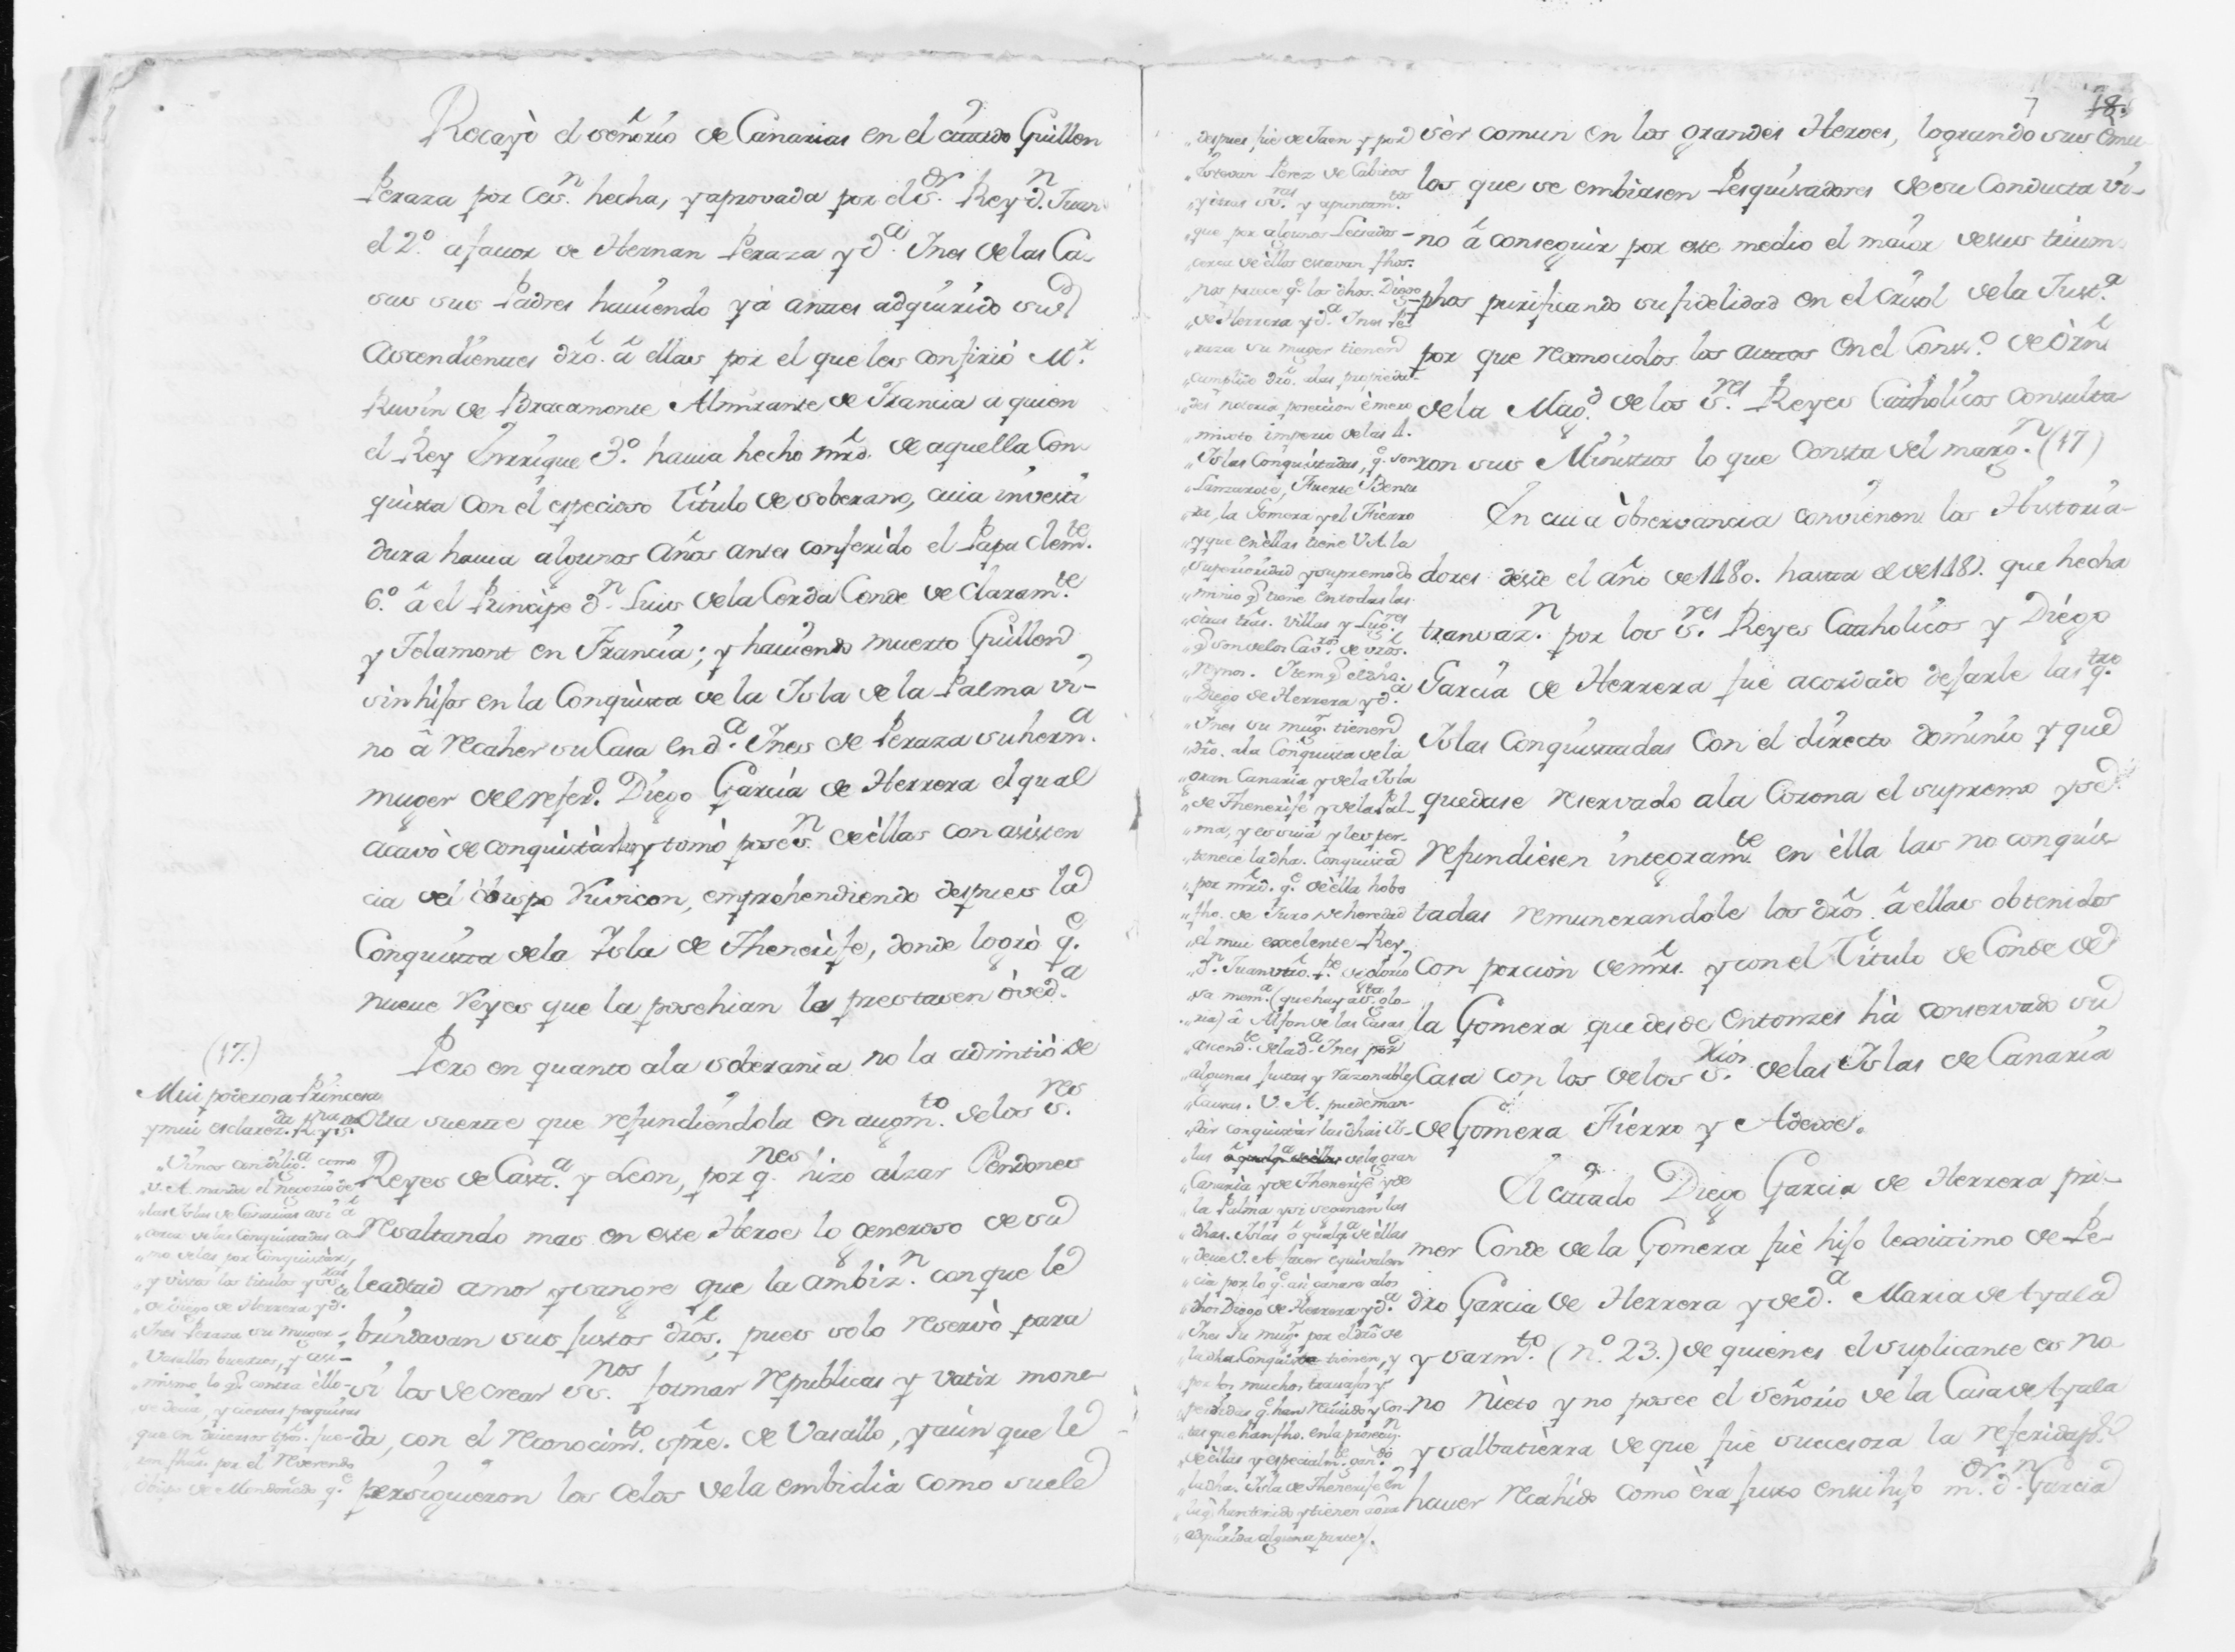 Recayò el señorio de Canarias en el citado Guillen
Peraza por Ces.n hecha, y aprovada por el S.or Rey d.n Juan
el 2.º a fauor de Hernan Peraza y d.a Ines de las Ca-
sas sus Padres hauiendo yà antes adquirido sus
Ascendientes dro. â ellas por el que les confirió M.r
Ruvin de Bracamonte Almirante de Francia a quien
el Rey Enrrique 3.º hauia hecho mrd. de aquella Con-
quista con el especioso Titulo de soberano, cuia investi
dura hauia algunos años antes conferido el Papa Clem.te
6.º â el Principe d.n Luis de la Cerda Conde de Claram.te
y Telamont en Francia; y hauiendo muerto Guillen
sin hijos en la Conquista de la Isla de la Palma vi-
no â recaher su Casa en d.a Ines de Peraza su herm.a
muger del refer.do Diego Garcia de Herrera el qual
acavò de conquistàrlas y tomò poses.n de èllas con asisten
cia del obispo Ruvicon, emprehendiendo despues la
Conquista de la Isla de Thenerife, donde logrò q.e
nueue Reyes que la posehian le prestasen òved.a
Pero en quanto a la soberania no la admitió de
otra suerte que refundiendola en augm.to de los S.res
Reyes de Cast.a y Leon, por q.nes hizo alzar Pendones
resaltando mas en este Heroe lo generoso de su
lealtad amor y sangre que la ambiz.n con que le
brindavan sus justos dros; pues solo reservò para
sì los de crear es.nos formar republicas y vatir mone-
da, con el reconocim.to spre. de Vasallo, y aùn que le
persiguieron los celos de la embidia como suele
(17.)
Mui poderosa Princesa
y mui esclarez.da Rey.
Vimos con dilig.a como
V. A. manda el negocio de
las Islas de Canarias asi â
cerca de las Conquistadas co
mo de las por Conquistàr,
y vistos los titulos y
de Diego de Herrera y d.a
Ines Peraza su muger
Vasallos buestros, y asi-
mismo lo q.e contra èllos
se decia, y ciertas pesquisas
que en diversos tpos. fue-
ron fhas. por el Reverendo
Obispo de Mondoñedo q.e
7 18.
despues fuè de Jaen y por
Estevan Perez de Cabitos
y otras es.ras y apuntam.tos
que por algunos Letrados
cerca de èllos estavan fhos.
nos parece q.e los dhos. Diego
de Herrera y d.a Ines Pe-
raza su muger tienen
cumplido dro. a las propieda-
des notoria posesion è mero
mixto imperio de las 4.
Islas Conquistadas, q.e son
Lanzarote, Fuerte Bentu
ra, la Gomera y el Fierro
y que en èllas tiene V. A. la
superioridad y supremo do
minio q.e tiene en todas las
otras trâs. Villas y Lug.res
q.e son de los Cav.ros de vros.
Reynos. Item q.e el dho.
Diego de Herrera y d.a
Ines su mug.r tienen
dro. a la Conquista de la
gran Canaria y de la Isla
de Thenerife y de la Pal-
ma, y es suia y les per-
tenece la dha. Conquista
por mrd. q.e de ella hobo
fho. de Juro de heredad
el mui excelente Rey
d.n Juan vtro. P.e de glorio
sa mem.a (que haya sta. glo-
ria) â Alfon de las Casas
ascend.te de la d.a Ines por
algunas justas y razonables
causas. V. A. puede man-
dàr conquistàr las dhas Is-
las de la gran
Canaria y de Thenerife y de
la Palma y si se ganan las
dhas. Islas ô qualq.a de èllas
deue V. A. facer equivalen
cia por lo q.e asi ganare a los
dhos Diego de Herrera y d.a
Ines su mug.r por el dro de
la dha Conquista tienen, y
por los muchos trauajos y
perdidas q.e han recibido y cos-
tas que han fho. en la prosecuz.n
de èllas y especialm.te ganà.do
la dha. Isla de Thenerife en
la q.e han tenido y tienen aora
adquirida alguna parte/.
sèr comun en los grandes Heroes, logrando sus èmu-
los que se embiasen Pesquisadores de su Conducta vi-
no â conseguir por este medio el maior de sus trium-
phos purificando su fidelidad en el crisol de la Just.a
por que reconocidos los autos en el Cons.o de orn
de la Mag.d de los S.res Reyes Catholicos consulta-
ron sus Ministros lo que consta del marg.n (17)
En cuia òbservancia convienen los Historia-
dores desde el año de 1480. hasta el de 1487. que hecha
transaz.n por los S.res Reyes Catholicos y Diego
Garcia de Herrera fuè acordado dejarle las q.tro
Islas Conquistadas con el directo dominio y que
quedase reservado a la Corona el supremo y se
refundiesen integram.te en èlla las no conquis
tadas remunerandole los dros. â ellas obtenidos
con porcion de mrs. y con el Titulo de Conde de
la Gomera que desde entonzes hà conservado su
Casa con los de los S.rios de las Islas de Canaria
de Gomera Fierro y Adexe.
El citado Diego Garcia de Herrera pri-
mer Conde de la Gomera fuè hijo lexitimo de Pe-
dro Garcia de Herrera y de d.a Maria de Ayala
y sarm.to (n.º 23.) de quienes el suplicante es no
no Nieto y no posee el señorio de la Casa de Ayala
y salbatierra de que fuè succesora la referida p.r
hauer recahido como èra justo en su hijo m.or d.n Garcia